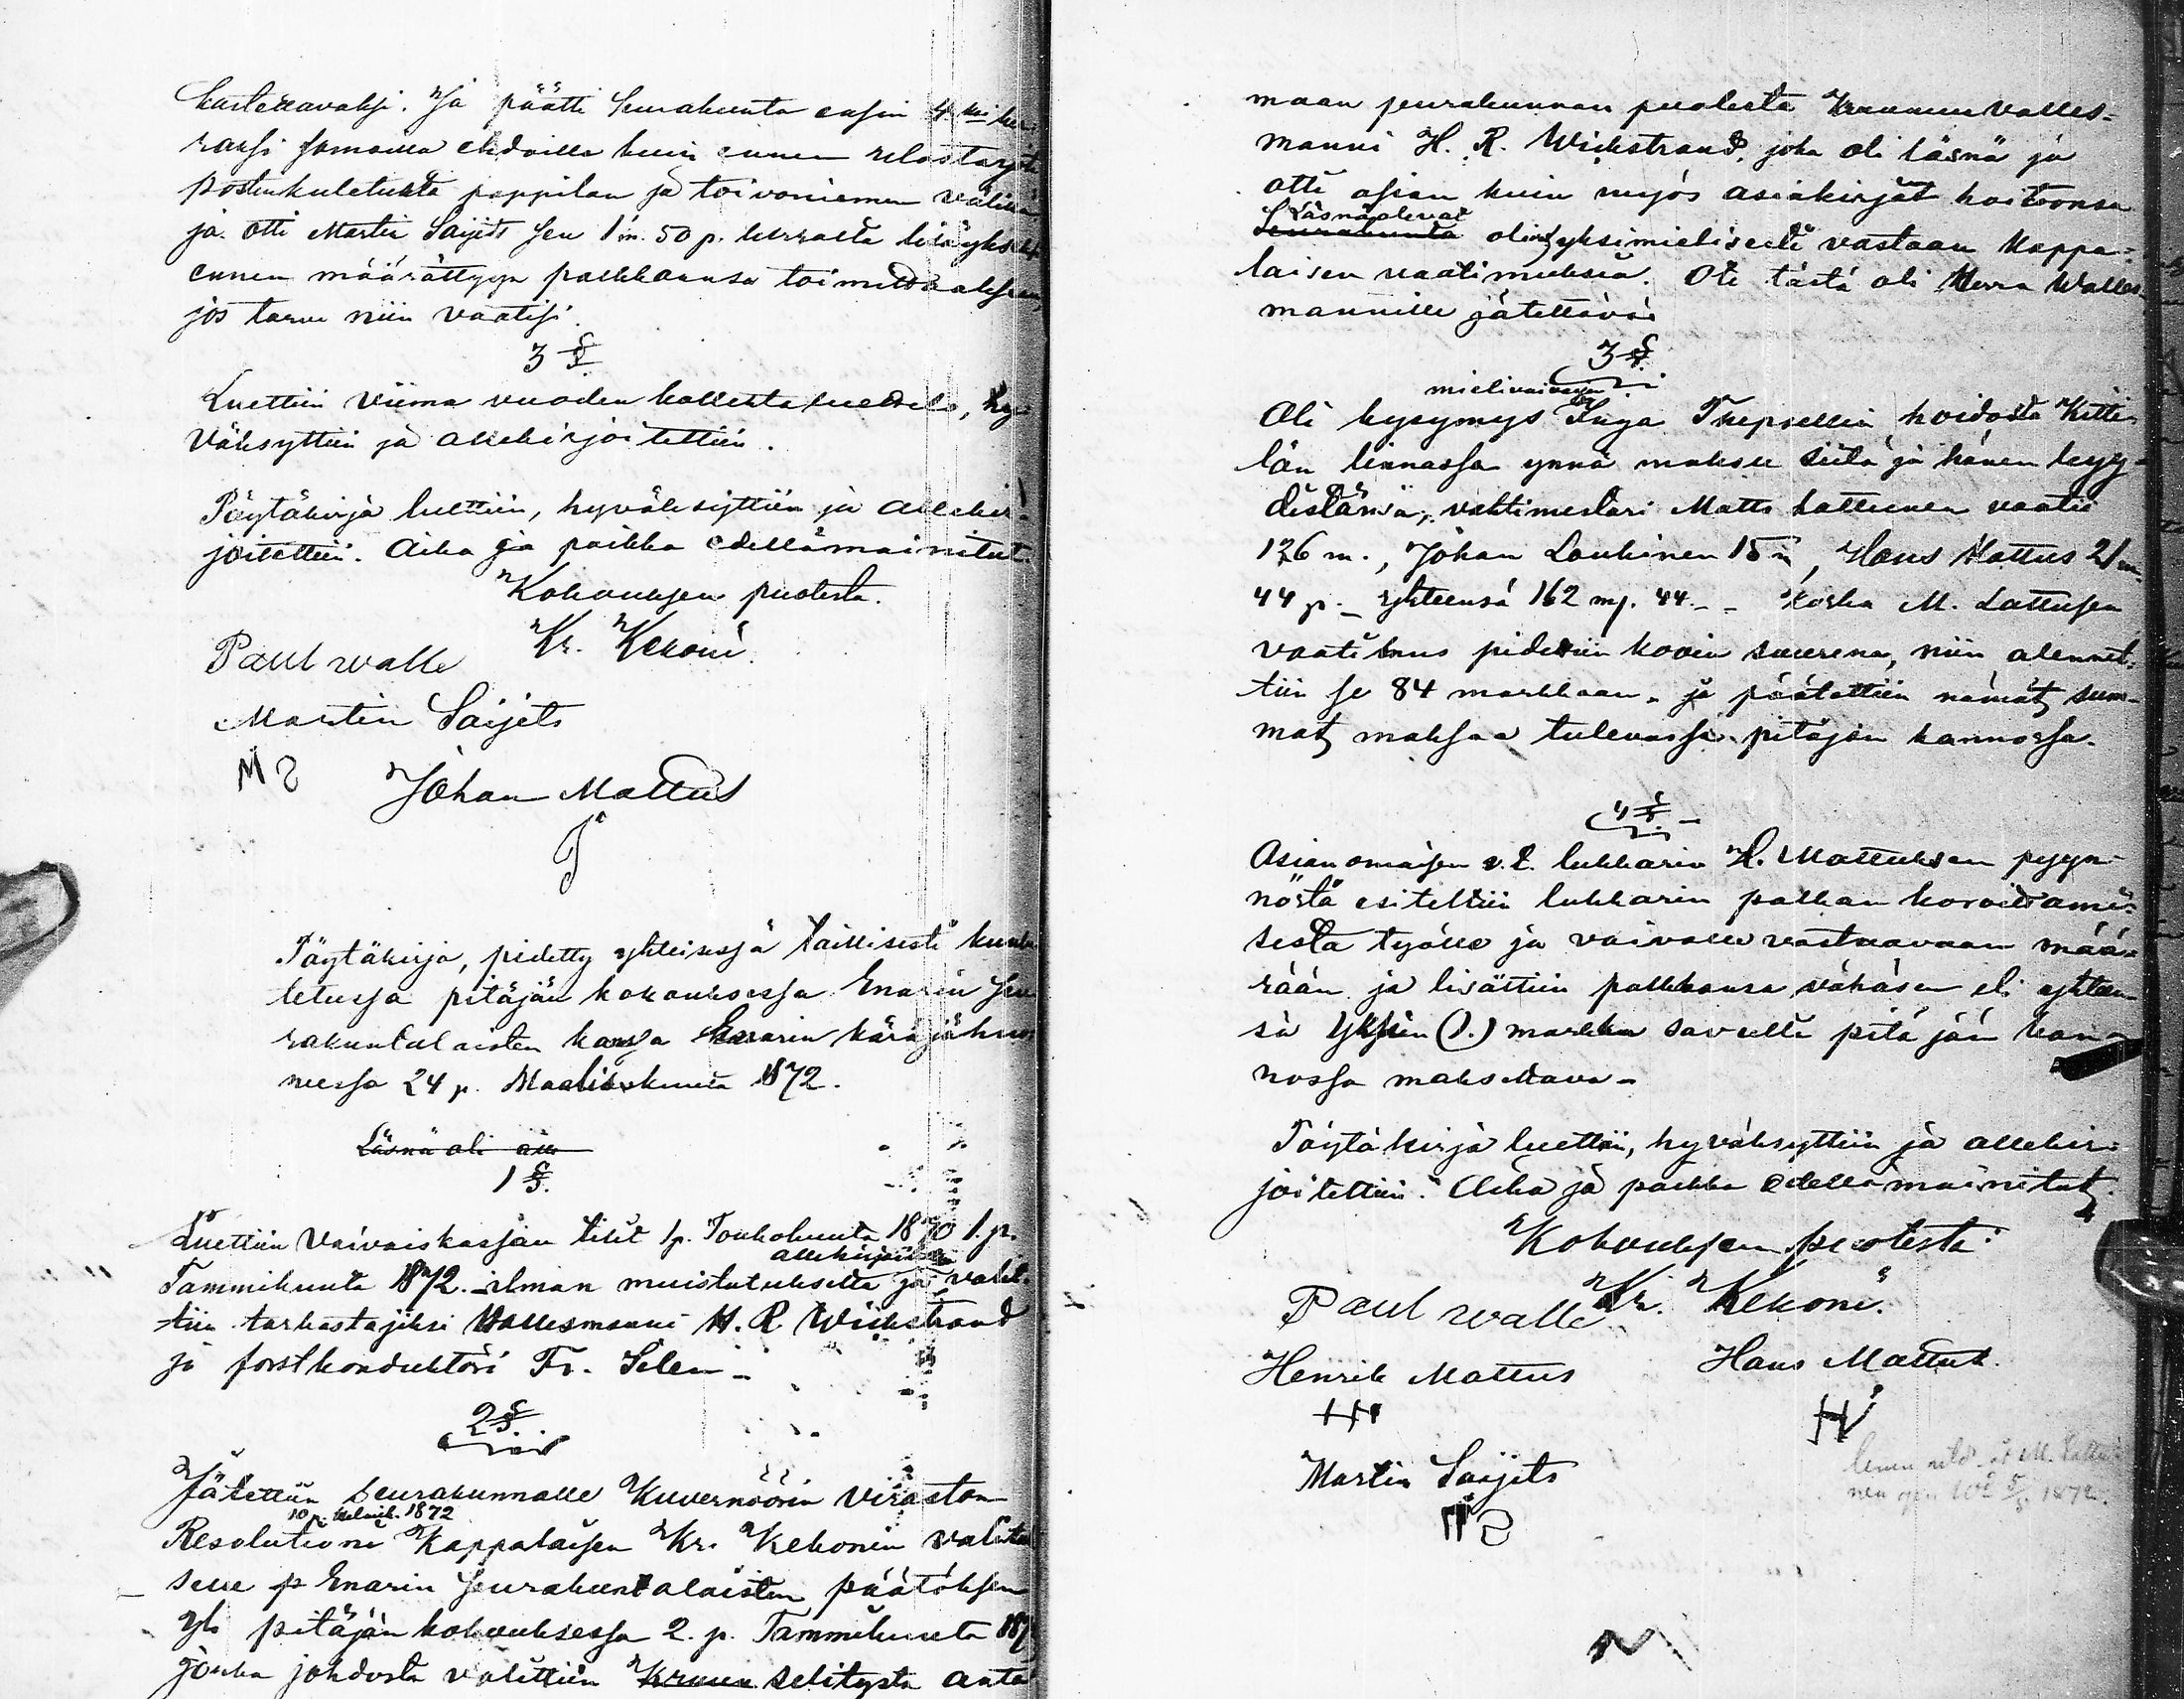 Ja päätti Seurakunta ensin 4
raksi samoilla ehdoilla kuin ennen
postinkuletusta pappilan ja toivoniemen välillä
ja otti Martin Saijets sen 1 m. 50 p. kerralta lisäyksellä
ennen määrättyyn palkkaansa toimittaaksensa,
jos tarve niin vaatisi.
3 §
Luettiin viime vuoden kollehtaluettelo, hy-
väksyttiin ja allekirjoitettiin.
Pöytäkirja luettiin, hyväksyttiin ja allekir-
joitettiin. Aika ja paikka edellämainitut.
Kokouksen puolesta.
Kr. Kekoni.
Paul walle
Martin Saijets
M S
Johan Mattus
Pöytäkirja, pidetty yhteisessä laillisesti kuulu
tetussa pitäjän kokouksessa Enarin Seu
rakuntalaisten kanssa Enarin käräjähuo
neessa 24 p. Maaliskuuta 1872.
Läsnä oli
1 §.
Luettiin Vaivaiskassan tilit 1 p. Toukokuuta 1870 1. p.
Tammikuuta 1872. ilman muistutuksetta ja valit-
tiin tarkastajiksi Wallesmanni H. R. Wickstrand
ja forstkonduktöri Fr. Selen -
2 §.
Jätettiin Seurakunnalle Kuvernöörin Viraston
10 p. Helmik. 1872
Resolutioni Kappalaisen Kr. Kekonin valituk
selle Enarin Seurakuntalaisten päätöksen
yli pitäjän kokouksessa 2. p. Tammikuuta 187
jonka johdosta valittiin Kruun selitystä anta
maan seurakunnan puolesta Kruunun valles-
manni H. R. Wickstrand, joka oli läsnä ja
otti asian kuin myös asiakirjat hoitoonsa
Läsnäolevat
Seurakunta olivat yksimielisesti vastaan Kappa-
laisen vaatimuksia. Ote tästä oli Herra Walles-
mannille jätettävä
3 §
mielivaivaisen
Oli kysymys Inga hoidosta Kitti-
län linnassa ynnä maksu siitä ja hänen kyy-
distänsä, vahtimestari Matts Lattunen vaatii
126 m., Johan Laukinen 15 m, Hans Mattus 21 m.
44 p. - yhteensä 162 mp. 44. - Koska M. Lattusen
vaatimus pidettiin kovin suurena, niin alennet-
tiin se 84 markkaan. ja päätettiin nämät sum-
mat maksaa tulevassa pitäjän kannossa.
4 §. -
Asianomaisen v. t. lukkarin H. Mattuksen pyyn-
nöstä esiteltiin lukkarin palkan koroittami-
sesta työlle ja vaivalle vastaavaan mää-
rään ja lisättiin palkkansa vähäsen eli yhteen-
sä yksin (1.) markka savulta pitäjän kan-
nossa maksettava -
Pöytäkirja luettiin, hyväksyttiin ja allekir-
joitettiin. Aika ja paikka edellämainitut.
Kokouksen puolesta:
Kr. Kekoni.
Paul walle
Henrik Mattus Hans Mattus.
Martin Saijets
M S